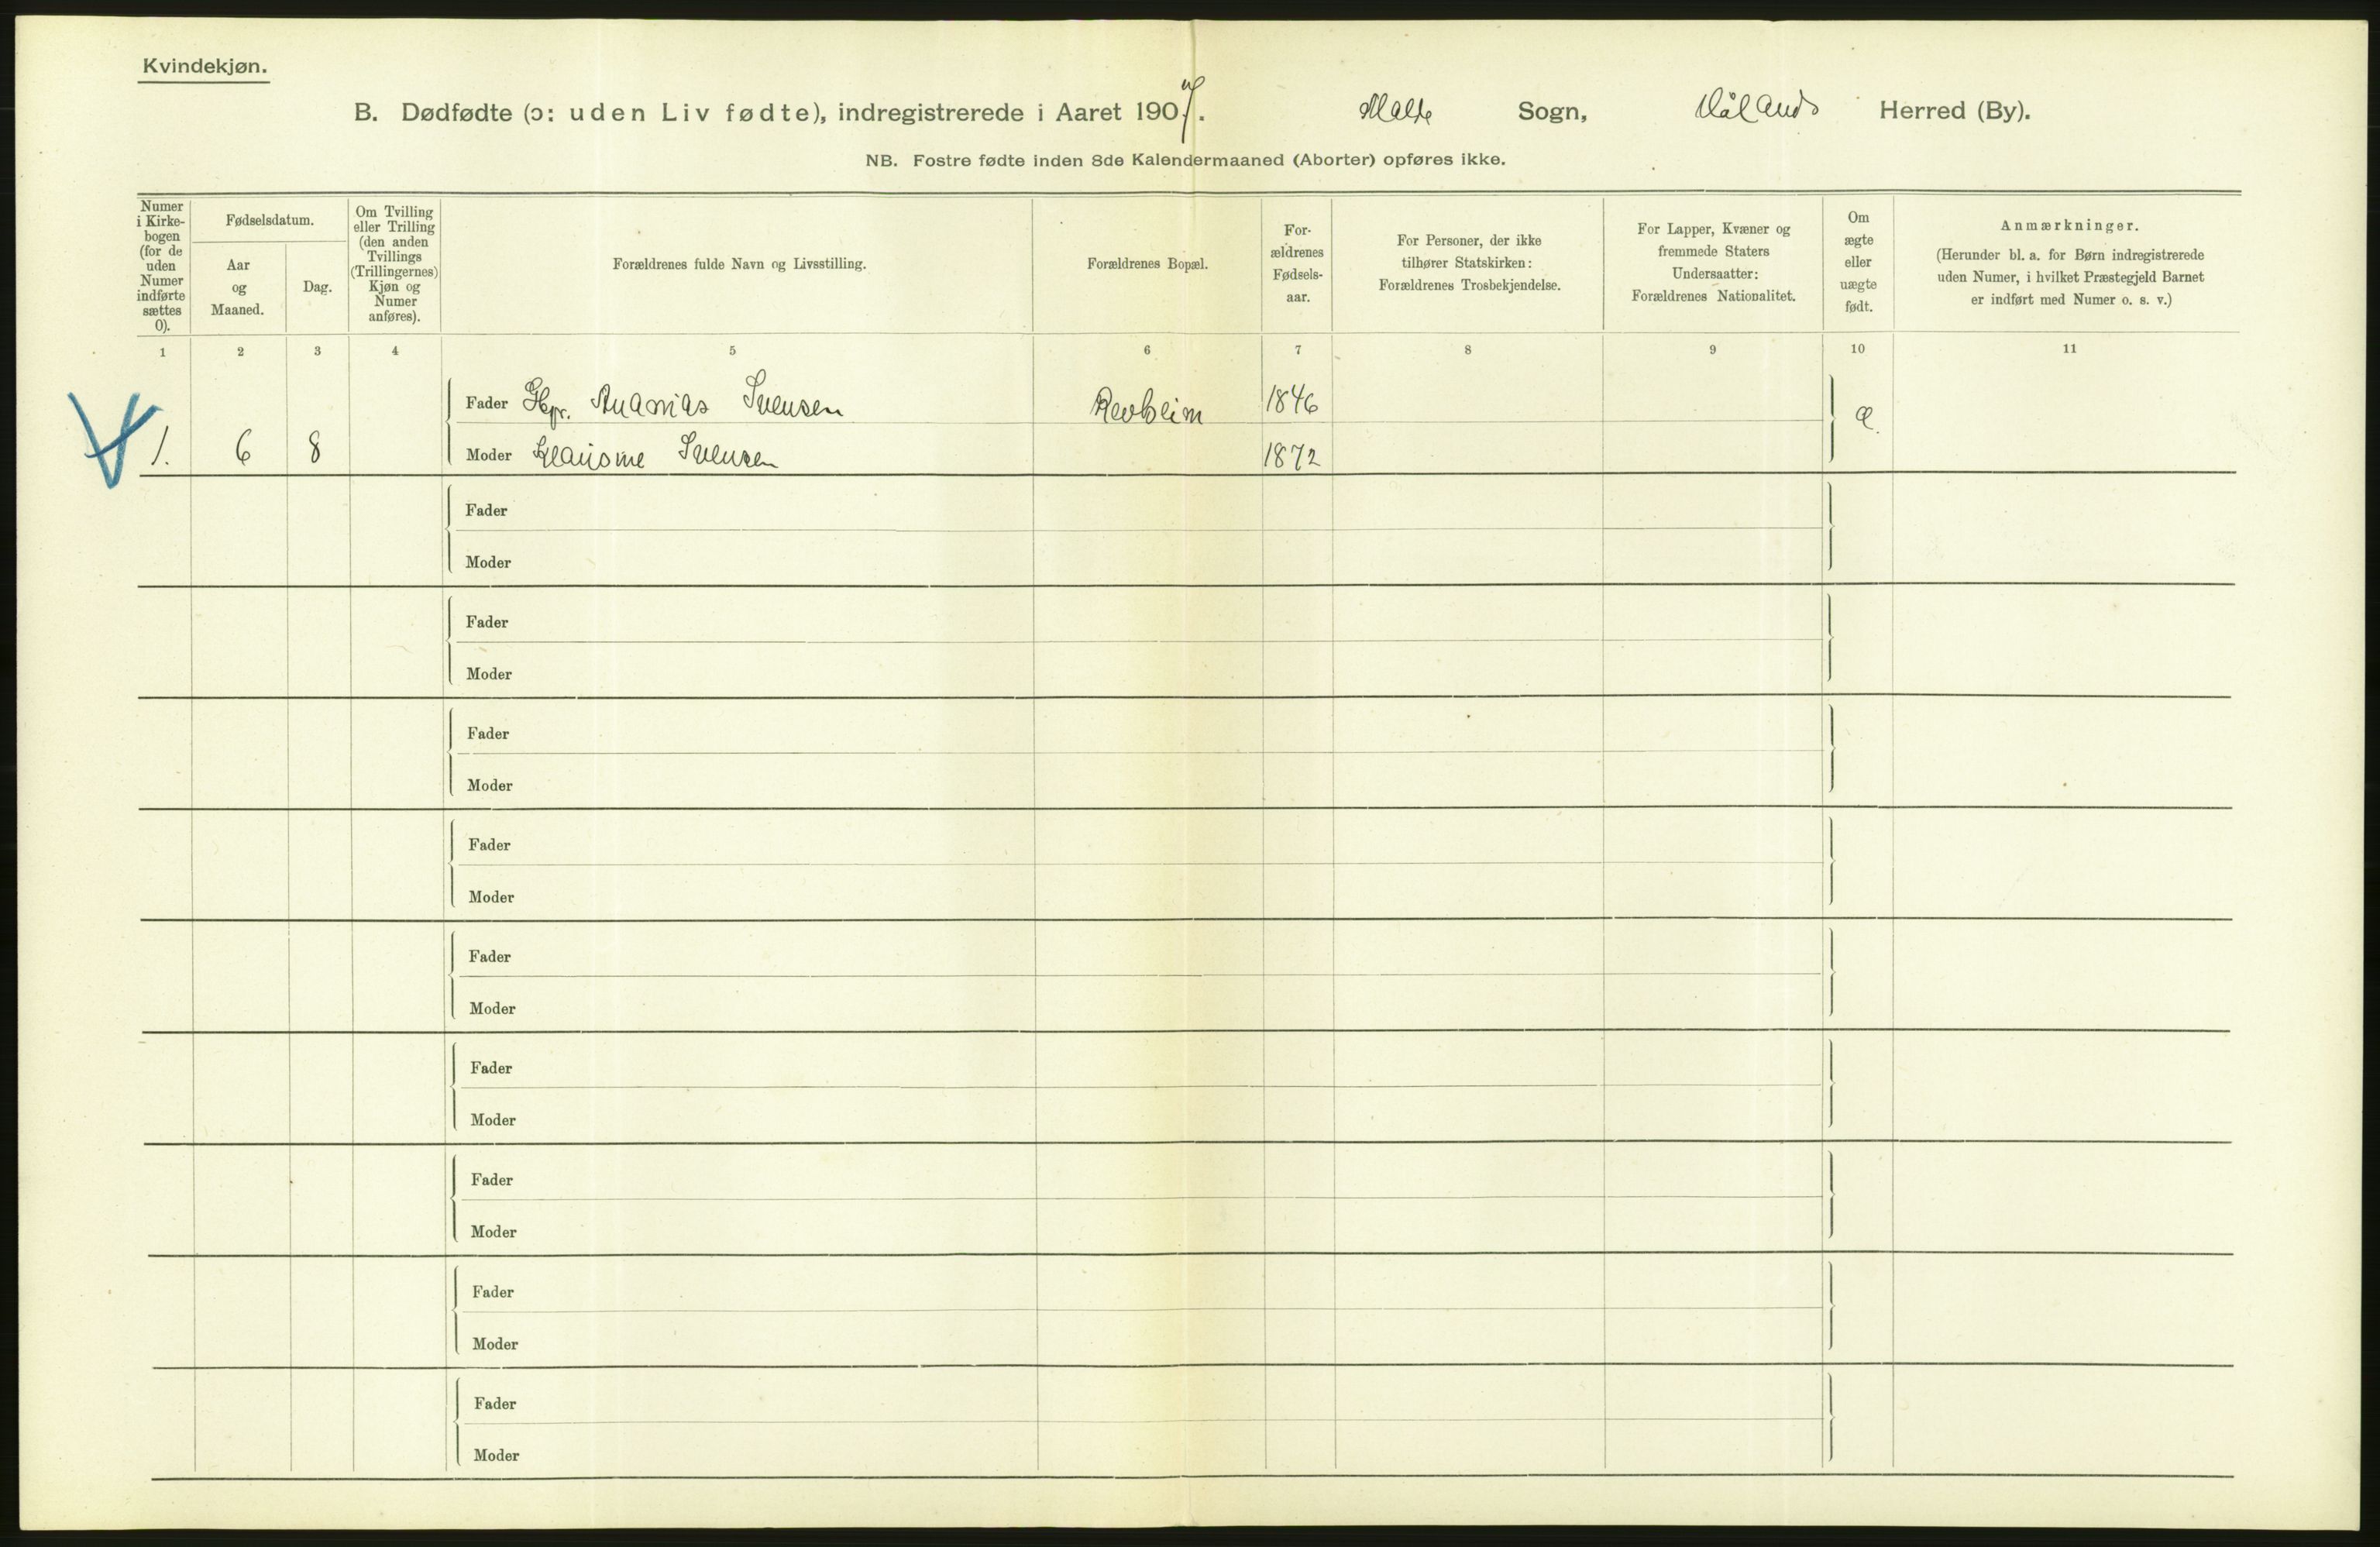 Kvindekjøn.
B. Dødfødte (ɔ: uden Liv fødte), indregistrerede i Aaret 1907. Malde Sogn, Hålands Herred (By).
NB. Fostre fødte inden 8de Kalendermaaned (Aborter) opføres ikke.
Numer
i Kirke-
bogen
(for de
uden
Numer
indførte
sættes
0).
Fødselsdatum.
Aar
og
Maaned.
Dag.
Om Tvilling
eller Trilling
(den anden
Tvillings
(Trillingernes)
Kjøn og
Numer
anføres).
Forældrenes fulde Navn og Livsstilling.
Forældrenes Bopæl.
For-
ældrenes
Fødsels-
aar.
For Personer, der ikke
tilhører Statskirken:
Forældrenes Trosbekjendelse.
For Lapper, Kvæner og
fremmede Staters
Undersaatter:
Forældrenes Nationalitet.
Om
ægte
eller
uægte
født.
Anmærkninger.
(Herunder bl. a. for Børn indregistrerede
uden Numer, i hvilket Præstegjeld Barnet
er indført med Numer o. s. v.)
1 2 3 4 5 6 7 8 9 10 11
Fader Gbr. Ananias Svensen Revheim 1846 æ.
1. 6 8 Moder Svensen 1872
Fader
Moder
Fader
Moder
Fader
Moder
Fader
Moder
Fader
Moder
Fader
Moder
Fader
Moder
Fader
Moder
Fader
Moder